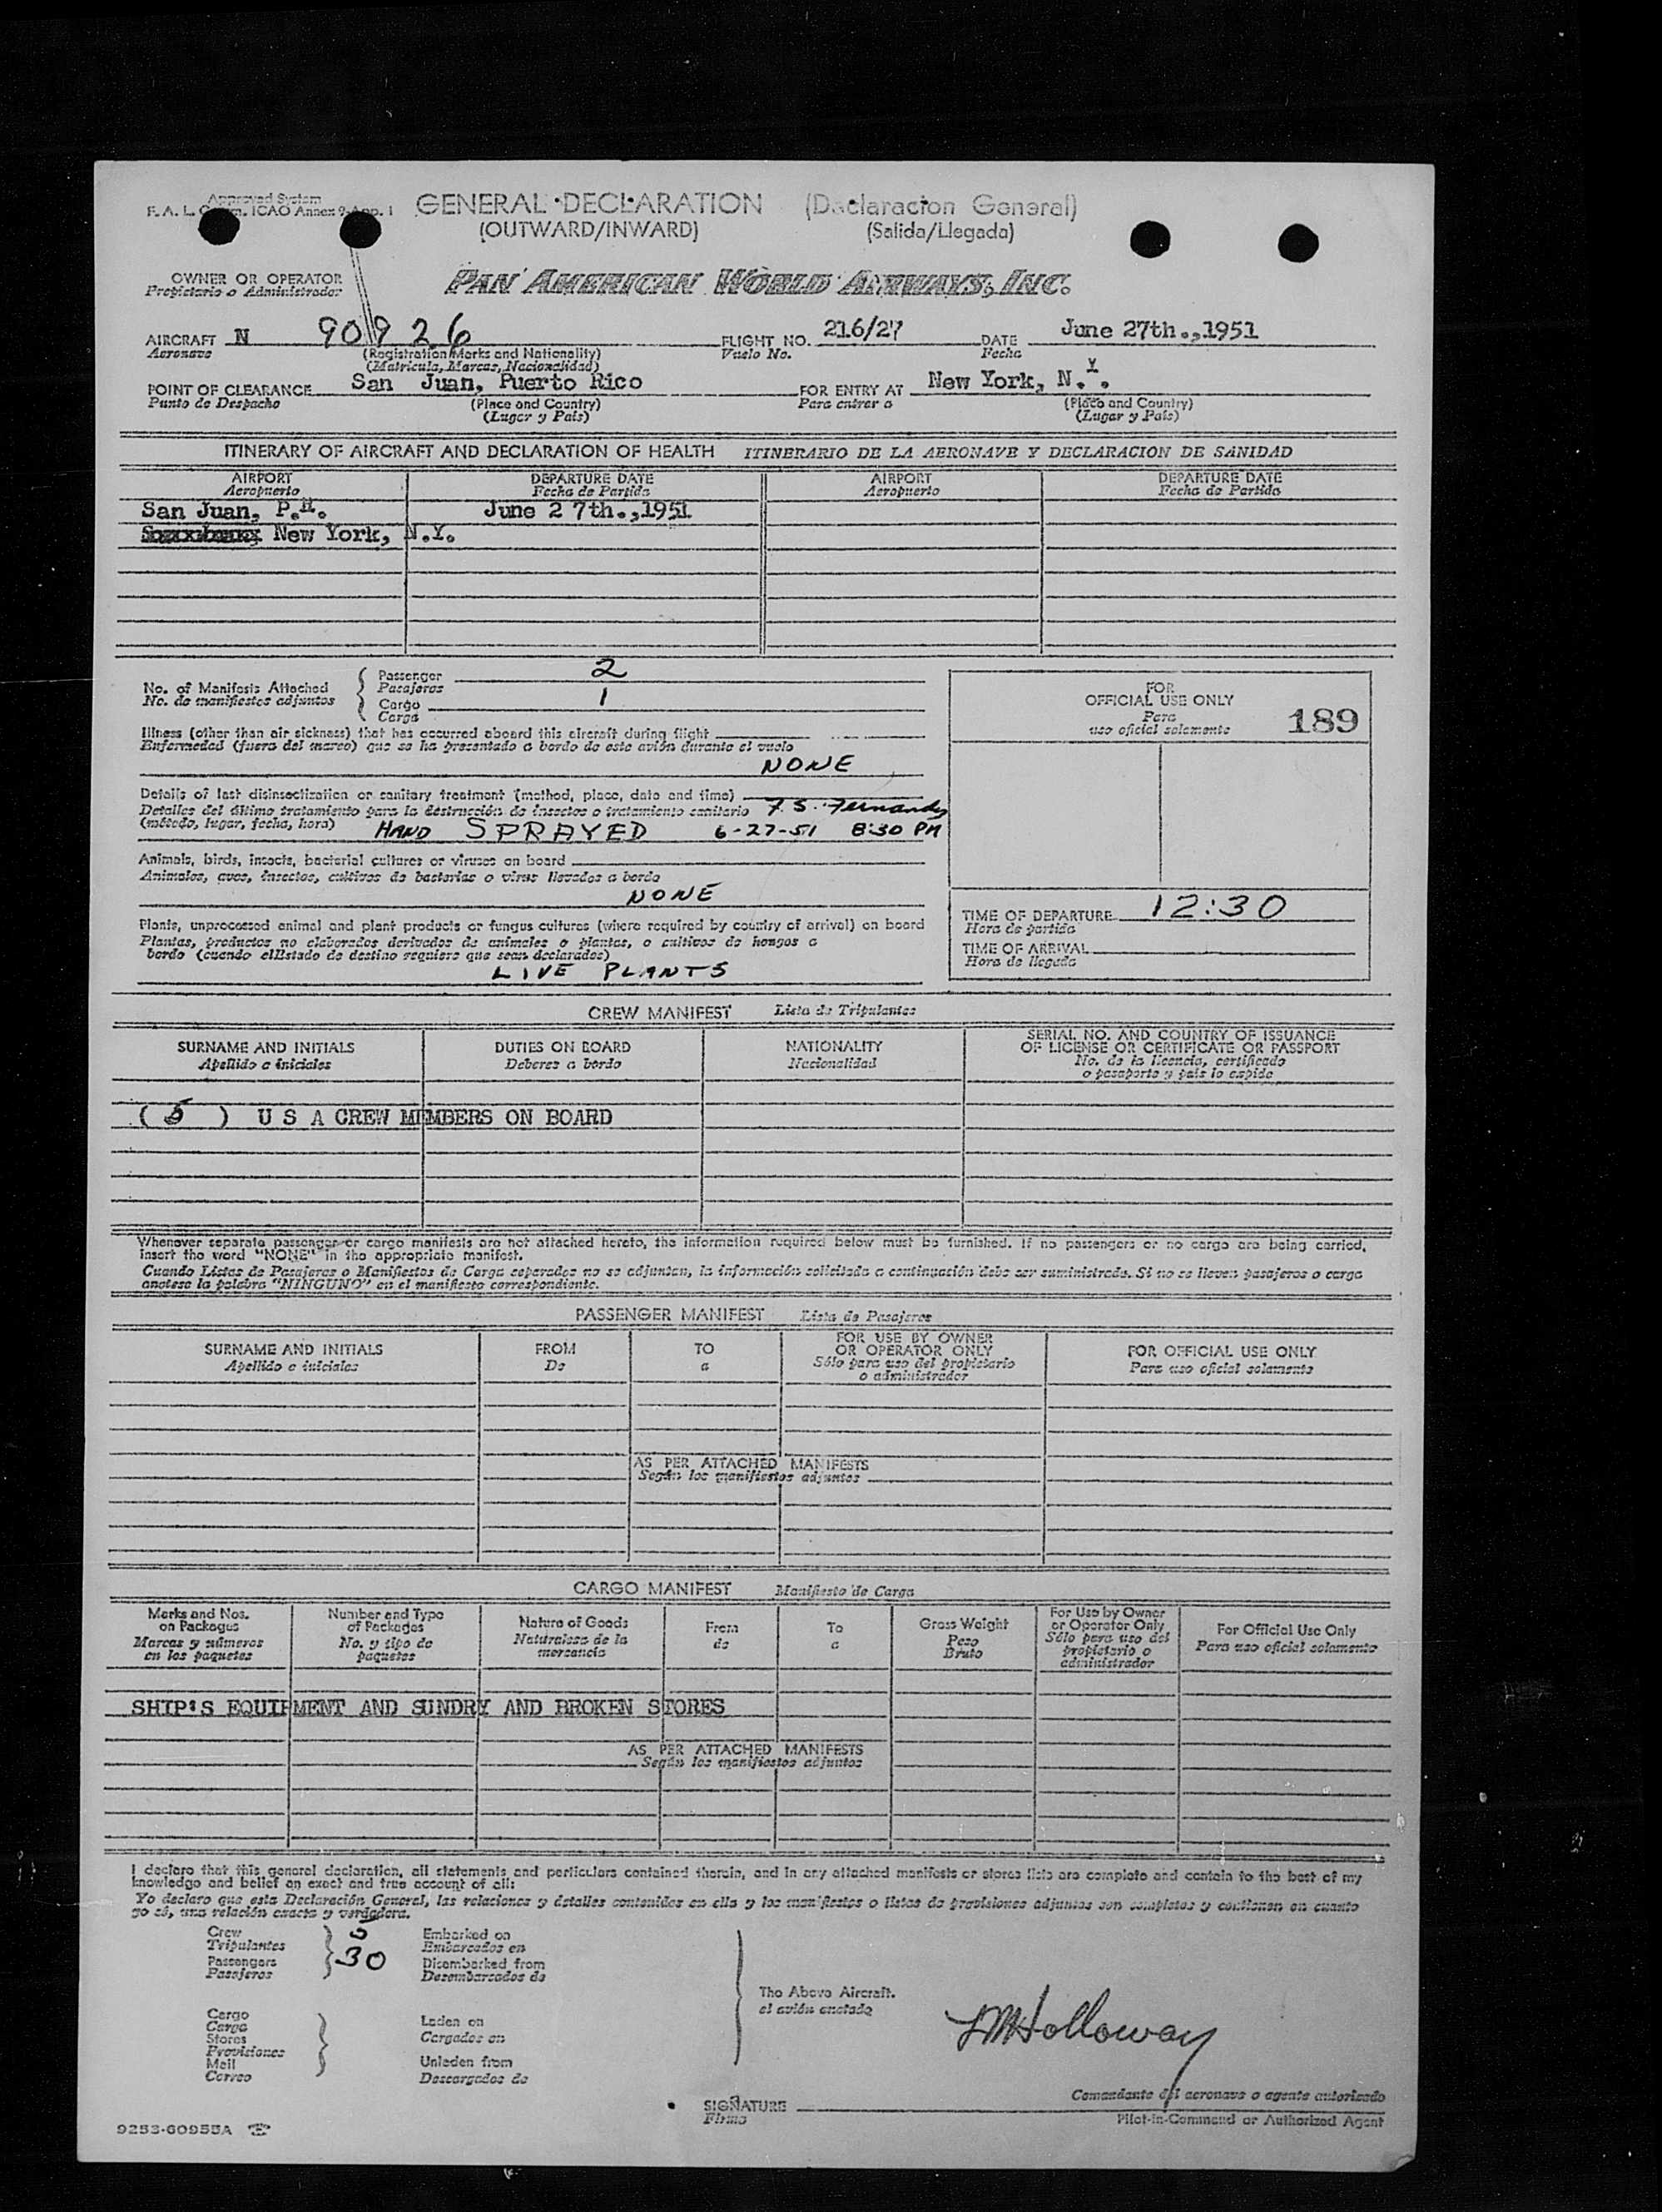 Approved System
F. A. L. Comm. ICAO Annex 9-App. 1
GENERAL DECLARATION (Declaracion General)
(OUTWARD/INWARD) (Salida/Llegada)
OWNER OR OPERATOR PAN AMERICAN WORLD AIRWAYS, INC.
Propietario o Administrador
AIRCRAFT N 90926 FLIGHT NO. 216/27 DATE June 27th.,1951
Aeronave (Registration Marks and Nationality) Vuelo No. Fecha
(Matricula, Marcas, Nacionalidad)
POINT OF CLEARANCE San Juan, Puerto Rico FOR ENTRY AT New York, N.Y.
Punto de Despacho (Place and Country) Para entrar a (Place and Country)
(Lugar y País) (Lugar y País)
ITINERARY OF AIRCRAFT AND DECLARATION OF HEALTH ITINERARIO DE LA AERONAVE Y DECLARACION DE SANIDAD
AIRPORT DEPARTURE DATE AIRPORT DEPARTURE DATE
Aeropuerto Fecha de Partida Aeropuerto Fecha de Partida
San Juan, P.R. June 2 7th.,1951
New York, N.Y.
No. of Manifests Attached Passenger 2
No. de manifiestos adjuntos Pasajeros
Cargo 1
Carga
FOR
OFFICIAL USE ONLY
Para
uso oficial solamente
189
Illness (other than air sickness) that has occurred aboard this aircraft during flight
Enfermedad (fuera del mareo) que se ha presentado a bordo de este avión durante el vuelo
NONE
Details of last disinsectization or sanitary treatment (method, place, date and time)
Detalles del último tratamiento para la destrucción de insectos o tratamiento sanitario F. S. Fernandez
(método, lugar, fecha, hora) HAND SPRAYED 6-27-51 8:30 PM
Animals, birds, insects, bacterial cultures or viruses on board
Animales, aves, insectos, cultivos de bacterias o virus llevados a bordo
NONE
Plants, unprocessed animal and plant products or fungus cultures (where required by country of arrival) on board
Plantas, productos no elaborados derivados de animales o plantas, o cultivos de hongos a
bordo (cuando elEstado de destino requiere que sean declarados)
LIVE PLANTS
TIME OF DEPARTURE 12:30
Hora de partida
TIME OF ARRIVAL
Hora de llegada
CREW MANIFEST Lista de Tripulantes
SURNAME AND INITIALS DUTIES ON BOARD NATIONALITY SERIAL NO. AND COUNTRY OF ISSUANCE
OF LICENSE OR CERTIFICATE OR PASSPORT
Apellido e iniciales Deberes a bordo Nacionalidad No. de la licencia, certificado
o pasaporte y país lo expide
( 5 ) U S A CREW MEMBERS ON BOARD
Whenever separate passenger or cargo manifests are not attached hereto, the information required below must be furnished. If no passengers or no cargo are being carried,
insert the word "NONE" in the appropriate manifest.
Cuando Listas de Pasajeros o Manifiestos de Carga separados no se adjuntan, la información solicitada a continuación debe ser suministrada. Si no se llevan pasajeros o carga
anotese la palabra "NINGUNO" en el manifiesto correspondiente.
PASSENGER MANIFEST Lista de Pasajeros
SURNAME AND INITIALS FROM TO FOR USE BY OWNER
OR OPERATOR ONLY FOR OFFICIAL USE ONLY
Apellido e iniciales De a Sólo para uso del propietario
o administrador Para uso oficial solamente
AS PER ATTACHED MANIFESTS
Según los manifiestos adjuntos
CARGO MANIFEST Manifiesto de Carga
Marks and Nos.
on Packages
Marcas y números
en los paquetes
Number and Type
of Packages
No. y tipo de
paquetes
Nature of Goods
Naturaleza de la
mercancia
From
de
To
a
Gross Weight
Peso
Bruto
For Use by Owner
or Operator Only
Sólo para uso del
propietario o
administrador
For Official Use Only
Para uso oficial solamente
SHIP'S EQUIPMENT AND SUNDRY AND BROKEN STORES
AS PER ATTACHED MANIFESTS
Según los manifiestos adjuntos
I declare that this general declaration, all statements and particulars contained therein, and in any attached manifests or stores lists are complete and contain to the best of my
knowledge and belief an exact and true account of all:
Yo declaro que esta Declaración General, las relaciones y detalles contenidos en ella y los manifiestos o listas de provisiones adjuntos son completos y contienen en cuanto
yo sé, una relación exacta y verdadera.
Crew 5 Embarked on
Tripulantes Embarcados en
Passengers 30 Disembarked from
Pasajeros Desembarcados de
The Above Aircraft.
el avión anotado
Cargo
Carga
Stores
Provisiones
Mail
Correo
Laden on
Cargados en
Unladen from
Descargados de
Holloway
SIGNATURE
Firma
Comandante del aeronave o agente autorizado
Pilot-in-Command or Authorized Agent
9253-60955A